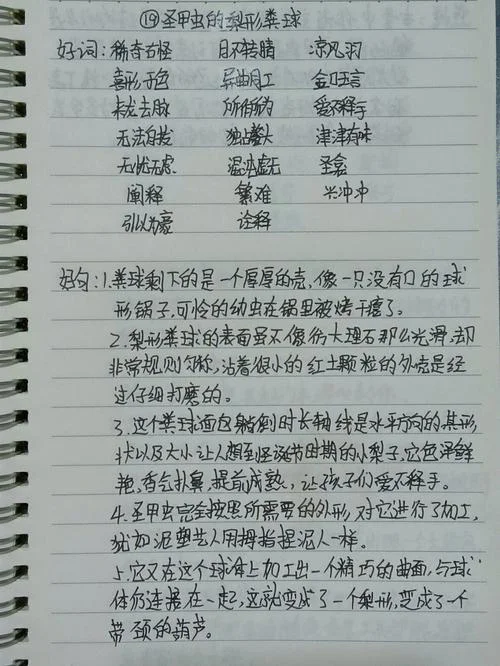 ⑲圣甲虫的梨形粪球
好词:稀奇古怪 目不转睛 凉风习
喜形于色 异曲同工 金口玉言
来龙去脉 所作所为 爱不释手
无法自拔 独占鳌头 津津有味
无忧无虑 混沌虚无 圣盒
阐释 繁难 兴冲冲
引以为豪 诠释
好句:1.粪球剩下的是一个厚厚的壳,像一只没有口的球
形锅子,可怜的幼虫在锅里被烤干瘪了。
2.梨形粪球的表面虽不像仿大理石那么光滑,却
非常规则匀称,沾着很小的红土颗粒的外壳是经
过仔细打磨的。
3.这个粪球面包躺倒时长轴线是水平方向的,其形
状以及大小让人想到圣诞节时期的小梨子,它色泽鲜
艳,香气扑鼻,提前成熟,让孩子们爱不释手。
4.圣甲虫完全按照所需要的外形,对它进行了加工,
犹如泥塑艺人用拇指捏泥人一样。
5.它又在这个球体上加工出一个精巧的曲面,与球
体仍连接在一起,这就变成了一个梨形,变成了一个
带颈的葫芦。